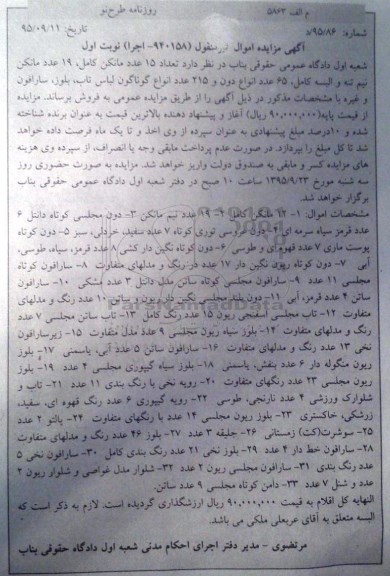 م الف ۵۸۶۳ روزنامه طرح‌نو
شماره: ۹۵/۸۶/د تاریخ: ۹۵/۰۹/۱۱
آگهی مزایده اموال غیرمنقول (۹۴۰۱۵۸- اجرا) نوبت اول
شعبه اول دادگاه عمومی حقوقی بناب در نظر دارد تعداد ۱۵ عدد مانکن کامل، ۱۹ عدد مانکن
نیم تنه و البسه کامل، ۶۵ عدد انواع دون و ۲۱۵ عدد انواع گوناگون لباس تاب، بلوز، سارافون
و غیره با مشخصات مذکور در ذیل آگهی را از طریق مزایده عمومی به فروش برساند. مزایده
از قیمت پایه (۹۰,۰۰۰,۰۰۰ ریال) آغاز و پیشنهاد دهنده بالاترین قیمت به عنوان برنده شناخته
شده و ۱۰درصد مبلغ پیشنهادی به عنوان سپرده از وی اخذ و تا یک ماه فرصت داده خواهد
شد تا کل مبلغ را بپردازد. در صورت عدم پرداخت مابقی وجه یا انصراف، از سپرده وی هزینه
های مزایده کسر و مابقی به صندوق دولت واریز خواهد شد. مزایده به صورت حضوری روز
سه شنبه مورخ ۱۳۹۵/۹/۲۳ ساعت ۱۰ صبح در دفتر شعبه اول دادگاه عمومی حقوقی بناب
برگزار خواهد شد.
مشخصات اموال: ۱- ۱۲ مانکن کامل ۲- ۱۹ عدد نیم مانکن ۳- دون مجلسی کوتاه دانتل ۶
عدد قرمز سیاه سرمه ای ۴- دون عروسی توری کوتاه ۷ عدد سفید، خردلی، سبز ۵- دون کوتاه
پوست ماری ۷ عدد قهوه ای و طوسی ۶- دون کوتاه نگین دار کشی ۸ عدد قرمز، سیاه، طوسی،
آبی ۷- دون کوتاه ریون نگین دار ۱۷ عدد در رنگ و مدلهای متفاوت ۸- سارافون کوتاه
مجلسی ۱۱ عدد ۹- سارافون مجلسی کوتاه ساتن مدل دانتل ۳ عدد مشکی ۱۰- سارافون
ساتن ۴ عدد قرمز، آبی ۱۱- دون بلند مجلسی نگین دار ریون و ساتن ۱۰ عدد رنگ و مدلهای
متفاوت ۱۲- تاب مجلسی اسفنجی ریون ۱۵ عدد رنگ کامل ۱۳- تاب ساتن مجلسی ۷ عدد
رنگ و مدلهای متفاوت ۱۴- بلوز سیاه ریون مجلسی ۹ عدد مدل متفاوت ۱۵- زیرسارافون
نخی ۱۳ عدد رنگ و مدلهای متفاوت ۱۶- سارافون ساتن ۵ عدد آبی، یاسمنی ۱۷- بلوز
ریون منگوله دار ۶ عدد بنفش، یاسمنی ۱۸- بلوز سیاه گیپوری مجلسی ۴ عدد ۱۹- بلوز
ریون مجلسی ۲۳ عدد رنگهای متفاوت ۲۰- رویه نخی با رنگ بندی ۱۱ عدد ۲۱- تاب و
شلوارک ورزشی ۴ عدد نارنجی، طوسی ۲۲- رویه گیپوری ۶ عدد رنگ قهوه ای، سفید،
زرشکی، خاکستری ۲۳- بلوز ریون مجلسی ۱۴ عدد با رنگهای متفاوت ۲۴- پالتو ۲ عدد
۲۵- سوئشرت(کت) زمستانی ۲۶- جلیقه ۳ عدد ۲۷- بلوز ۴۶ عدد رنگ و مدلهای متفاوت
۲۸- سارافون خط دار ۴ عدد ۲۹- بلوز نخی ۲۱ عدد رنگ بندی کامل ۳۰- سارافون نخی ۵
عدد رنگ بندی ۳۱- سارافون مجلسی ریون ۲ عدد ۳۲- شلوار مدل غواصی و شلوار ریون ۲
عدد و شنل ۷ عدد ۳۳- دامن کوتاه مجلسی ۹ عدد ساتن.
النهایه کل اقلام به قیمت ۹۰,۰۰۰,۰۰۰ ریال ارزشگذاری گردیده است. لازم به ذکر است که
البسه متعلق به آقای عربعلی ملکی می باشد.
مرتضوی - مدیر دفتر اجرای احکام مدنی شعبه اول دادگاه حقوقی بناب